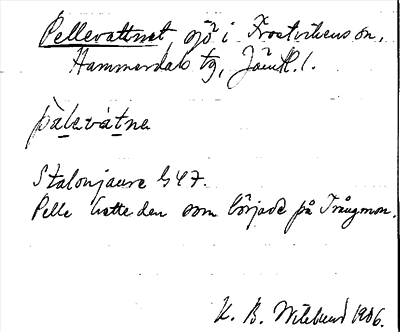 Pellevattnet sjö i Frostvikens sn,
Hammerdals tg, Jämtl. l.
pàlavátna
Stalonjaure G47.
Pelle hette den som började på Trångmon.
K. B. Wiklund 1906.